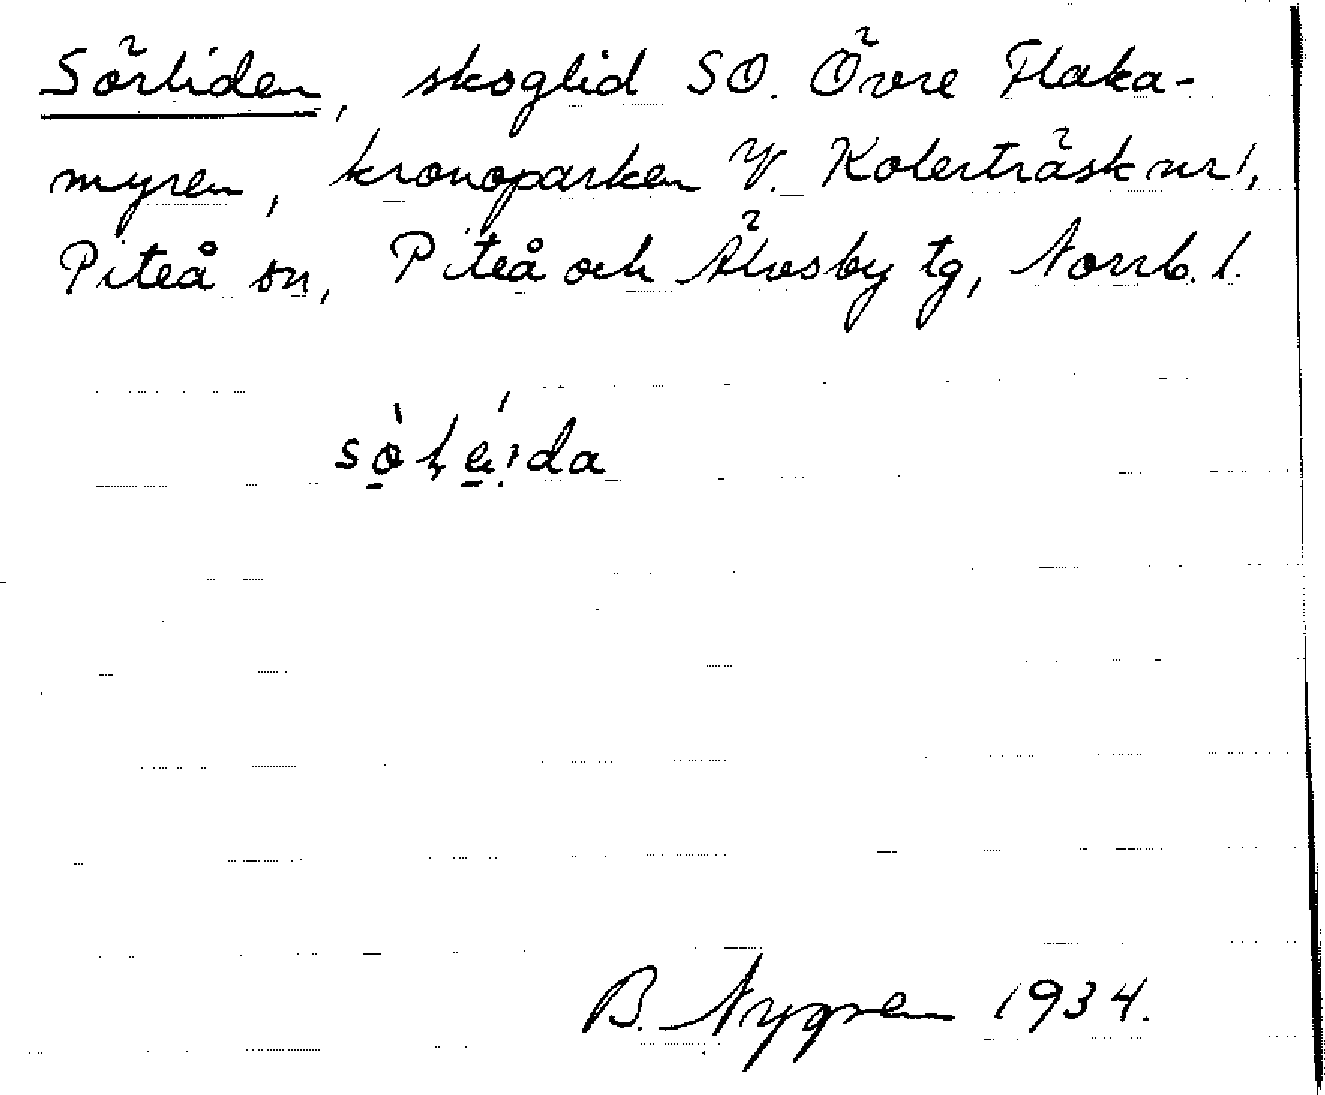 Sörliden, skoglid SO. Övre Flaka-
myren, kronoparken V. Kolerträsk nr 1,
Piteå sn, Piteå och Älvsby tg, Norrb. l.
B. Nygren 1934.